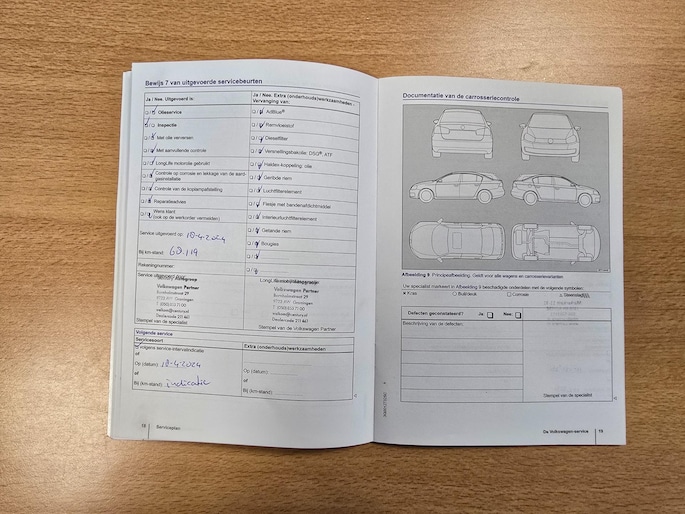 Bewijs 7 van uitgevoerde servicebeurten
Ja / Nee. Uitgevoerd is:
Ja / Nee. Extra (onderhouds)werkzaamheden -
Vervanging van:
Olieservice
AdBlue®
Inspectie
Remvloeistof
Met olie verversen
Dieselfilter
Met aanvullende controle
Versnellingsbakolie: DSG®, ATF
LongLife motorolie gebruikt
Haldex koppeling: olie
Controle op corrosie en lekkage van de aard-
gasinstallatie
Geribde riem
Controle van de koplampafstelling
Luchtfilterelement
Reparatieadvies
Flesje met bandenafdichtmiddel
Wens klant
(ook op de werkorder vermelden)
Interieurluchtfilterelement
Getande riem
Service uitgevoerd op: 18-4-2024
Bougies
Bij km-stand: 60.119
Rekeningnummer:
Service uitgevoerd door:
Volkswagen Partner
Groningen
Stempel van de specialist
Volkswagen Partner
Groningen
Stempel van de Volkswagen Partner
Volgende service
Servicesoort
Extra (onderhouds)werkzaamheden
Volgens service-intervalindicatie
of
Op (datum): 18-4-2024
Op (datum):
of
of
Bij (km-stand): indicatie
Bij (km-stand):
18 Serviceplan
Documentatie van de carrosseriecontrole
Afbeelding 9 Principeafbeelding. Geldt voor alle wagens en carrosserievarianten
Uw specialist markeert in Afbeelding 9 beschadigde onderdelen met de volgende symbolen:
× Kras
○ Buil/deuk
□ Corrosie
△ Steenslag
Defecten geconstateerd? Ja Nee:
Beschrijving van de defecten:
Stempel van de specialist
De Volkswagen-service 19